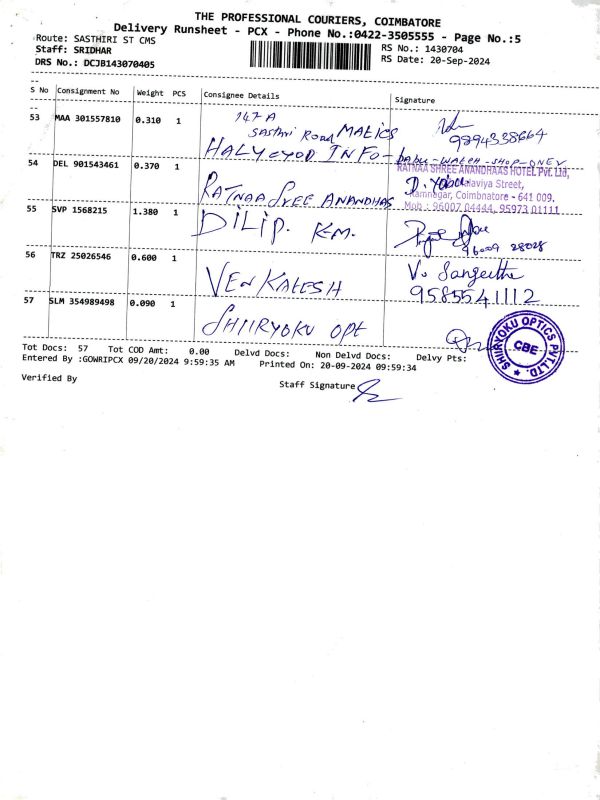 THE PROFESSIONAL COURIERS, COIMBATORE
Delivery Runsheet - PCX - Phone No.:0422-3505555 - Page No.:5
Route: SASTHIRI ST CMS
RS No.: 1430704
Staff: SRIDHAR
RS Date: 20-Sep-2024
DRS No.: DCJB143070405
S No Consignment No Weight PCS Consignee Details Signature
53 MAA 301557810 0.310 1
147 A
Sasthri Road MALICS
HALYCYOD INFO-
9894338664
babu-WATCH-SHOP-ONEY
54 DEL 901543461 0.370 1
RATNAA SREE ANANDHAS
RATNAA SHREE ANANDHAAS HOTEL Pvt. Ltd,
Malaviya Street,
Ramnagar, Coimbnatore - 641 009.
Mob : 96007 04444, 95973 01111
55 SVP 1568215 1.380 1
DILIP. K.M.
96009 28028
56 TRZ 25026546 0.600 1
VENKATESH
V. Sangeetha
9585541112
57 SLM 354989498 0.090 1
SHIIRYOKU OPT
SHIIRYOKU OPTICS PVT.LTD.
CBE
Tot Docs: 57 Tot COD Amt: 0.00 Delvd Docs: Non Delvd Docs: Delvy Pts:
Entered By :GOWRIPCX 09/20/2024 9:59:35 AM Printed On: 20-09-2024 09:59:34
Verified By
Staff Signature